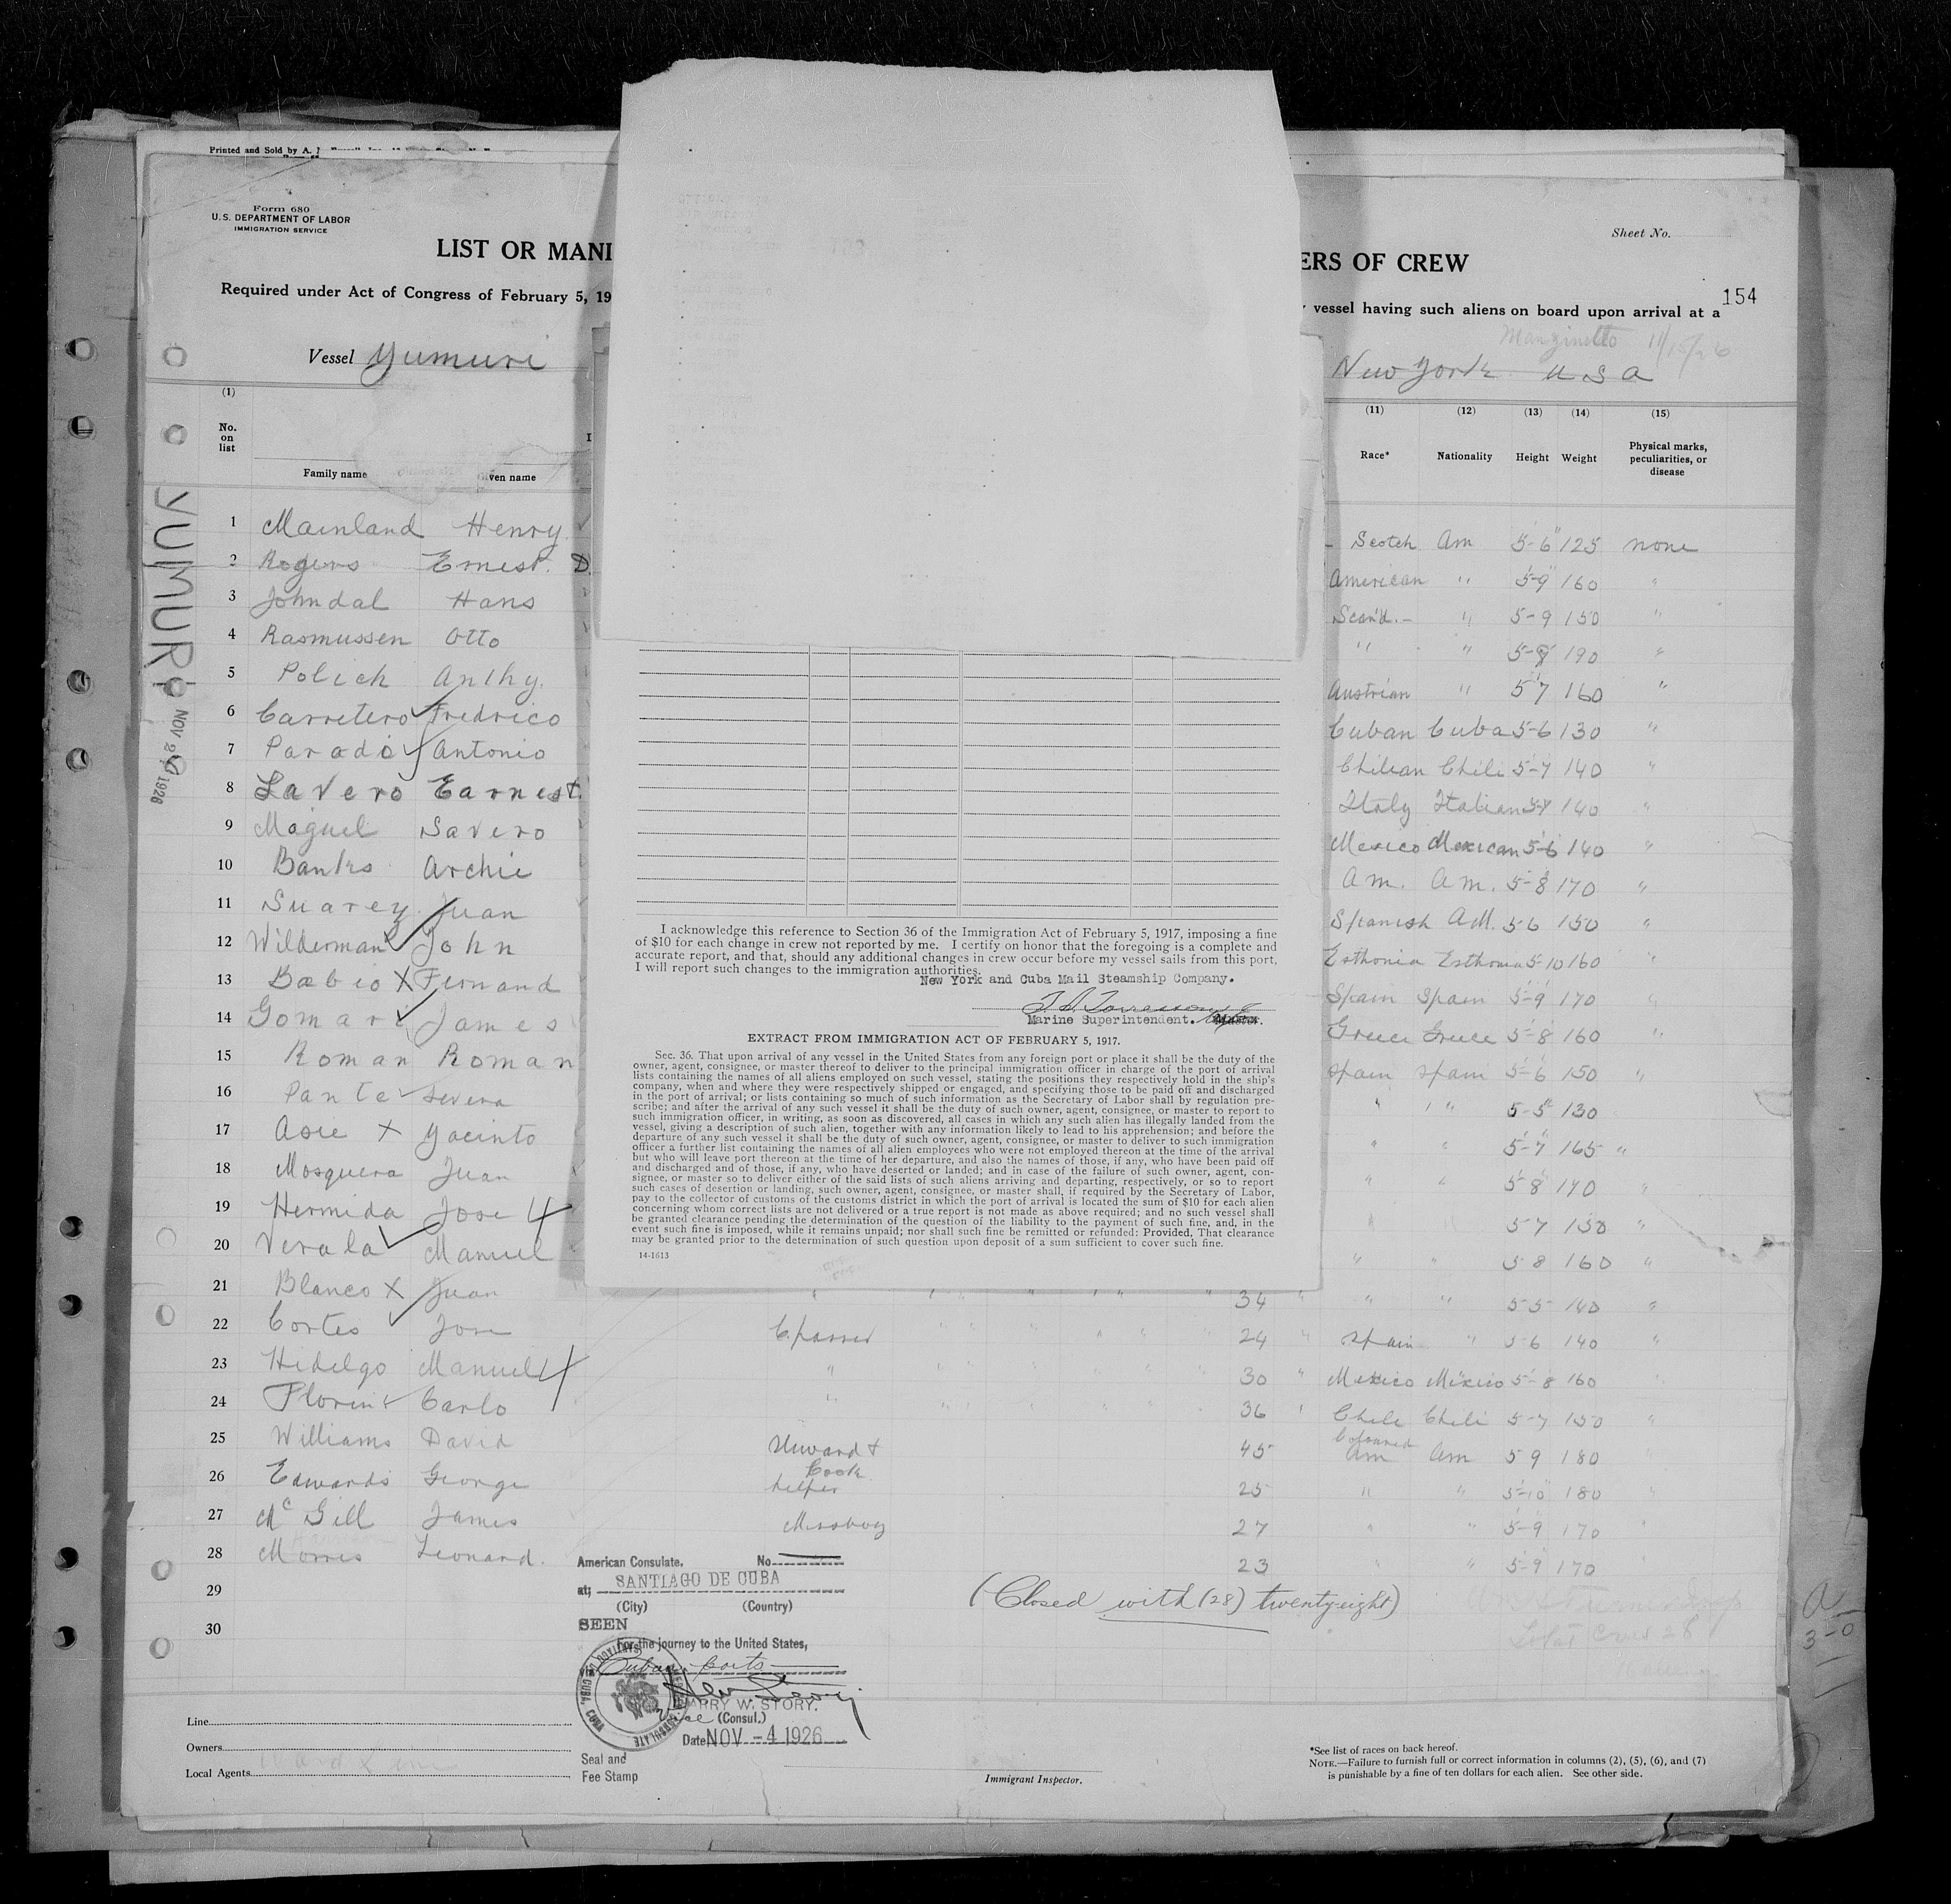 Printed and Sold by A.
Form 680
U.S. DEPARTMENT OF LABOR
IMMIGRATION SERVICE
Sheet No.
LIST OR MANI
ERS OF CREW
Required under Act of Congress of February 5, 19
vessel having such aliens on board upon arrival at a
154
11/15/26
Vessel Yumuri
New York U S A
(1) (11) (12) (13) (14) (15)
No. on list
Family name
ven name
Race* Nationality Height Weight Physical marks, peculiarities, or disease
YUMURI
NOV 1926
1 Mainland Henry Scotch Am 5-6 125 none
2 Rogers Ernest. D. American " 5-9 160 "
3 Johndal Hans Scan'd.- " 5-9 150 "
4 Rasmussen Otto " " 190 "
5 Polich Anthy. Austrian " 5 7 160 "
6 Carretero Fredrico Cuban Cuba 5-6 130 "
7 Parado Antonio Chilian Chili 5-7 140 "
8 Lavero Earnest. Italy Italian 140 "
9 Maguel Savero Mexico Mexican 5-6 140 "
10 Banks Archie Am. Am. 5-8 170 "
11 Suarey Juan Spanish AM. 5-6 150 "
12 Wilderman John Esthonia Esthonia 5-10 160 "
13 Babio X Fernand Spain Spain 5-9 170 "
14 James Greece Greece 5-8 160 "
15 Roman Roman Spain Spain 5-6 150 "
16 Pante Severa " " 5-5 130
17 Asie X Yacinto " " 5-7 165 "
18 Mosquera Juan " " 5 8 170 "
19 Hermida Jose 5 7 150 "
20 Verala Manuel " " 5 8 160 "
21 Blanco X Juan 34 " " " 5 5 140 "
22 Cortes Jose 24 " Spain " 5-6 140 "
23 Hidelgo Manuel " 30 " Mexico Mexico 5-8 160
24 Florin Carlo " 36 Chile Chili 5-7 150 "
25 Williams David 45 Coloured Am Am 5 9 180
26 Edwards George Cook helper 25 " " 5-10 180
27 McGill James Messboy 27 " " 5-9 170
28 Morris Leonard. 23 " " 5-9 170
29
30
(Closed with (28) twenty eight)
Total Crew 28
3-0
I acknowledge this reference to Section 36 of the Immigration Act of February 5, 1917, imposing a fine
of $10 for each change in crew not reported by me. I certify on honor that the foregoing is a complete and
accurate report, and that, should any additional changes in crew occur before my vessel sails from this port,
I will report such changes to the immigration authorities.
New York and Cuba Mail Steamship Company.
Marine Superintendent.
EXTRACT FROM IMMIGRATION ACT OF FEBRUARY 5, 1917.
Sec. 36. That upon arrival of any vessel in the United States from any foreign port or place it shall be the duty of the
owner, agent, consignee, or master thereof to deliver to the principal immigration officer in charge of the port of arrival
lists containing the names of all aliens employed on such vessel, stating the positions they respectively hold in the ship's
company, when and where they were respectively shipped or engaged, and specifying those to be paid off and discharged
in the port of arrival; or lists containing so much of such information as the Secretary of Labor shall by regulation pre-
scribe; and after the arrival of any such vessel it shall be the duty of such owner, agent, consignee, or master to report to
such immigration officer, in writing, as soon as discovered, all cases in which any such alien has illegally landed from the
vessel, giving a description of such alien, together with any information likely to lead to his apprehension; and before the
departure of any such vessel it shall be the duty of such owner, agent, consignee, or master to deliver to such immigration
officer a further list containing the names of all alien employees who were not employed thereon at the time of the arrival
but who will leave port thereon at the time of her departure, and also the names of those, if any, who have been paid off
and discharged and of those, if any, who have deserted or landed; and in case of the failure of such owner, agent, con-
signee, or master so to deliver either of the said lists of such aliens arriving and departing, respectively, or so to report
such cases of desertion or landing, such owner, agent, consignee, or master shall, if required by the Secretary of Labor,
pay to the collector of customs of the customs district in which the port of arrival is located the sum of $10 for each alien
concerning whom correct lists are not delivered or a true report is not made as above required; and no such vessel shall
be granted clearance pending the determination of the question of the liability to the payment of such fine, and, in the
event such fine is imposed, while it remains unpaid; nor shall such fine be remitted or refunded: Provided, That clearance
may be granted prior to the determination of such question upon deposit of a sum sufficient to cover such fine.
14-1613
American Consulate. No
at; SANTIAGO DE CUBA
(City) (Country)
SEEN
For the journey to the United States,
Cuban ports
HARRY W. STORY.
Vice (Consul.)
Date NOV - 4 1926
Seal and
Fee Stamp
Line
Owners
Local Agents
Immigrant Inspector.
*See list of races on back hereof.
NOTE.—Failure to furnish full or correct information in columns (2), (5), (6), and (7)
is punishable by a fine of ten dollars for each alien. See other side.